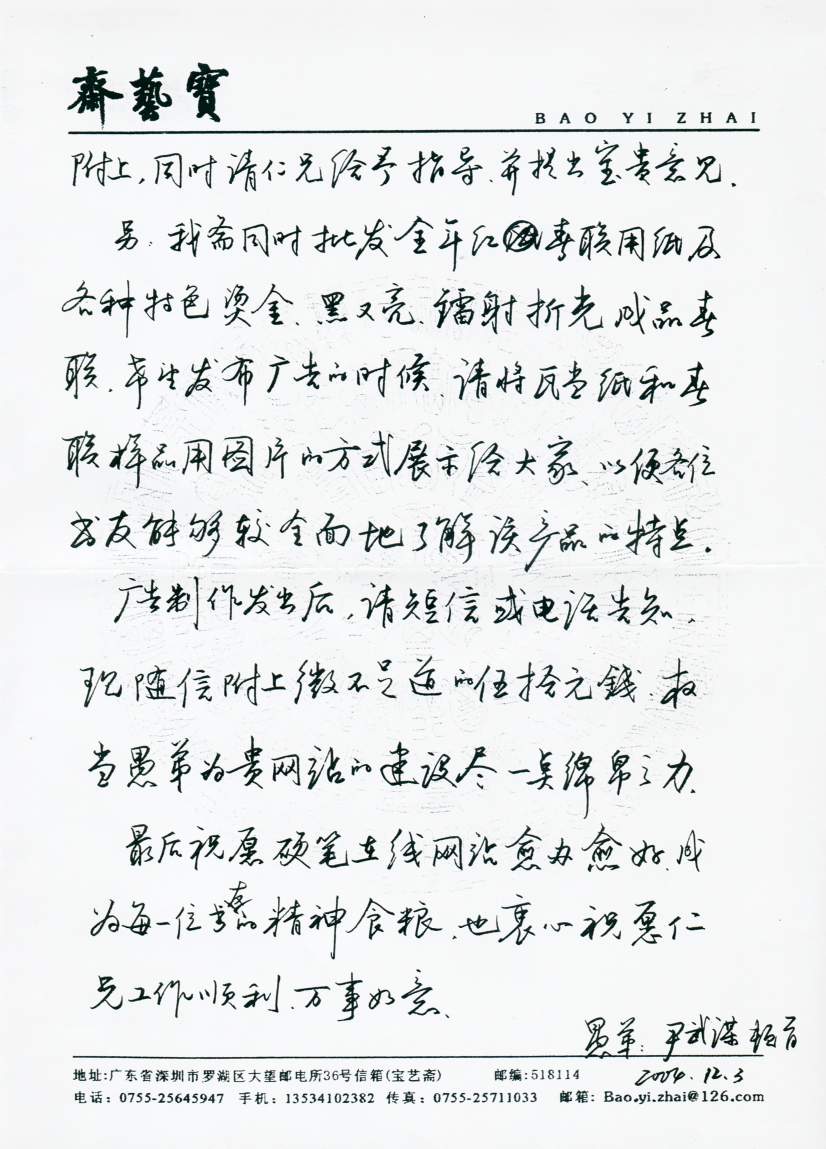 齋藝寶
BAO YI ZHAI
附上,同时请仁兄给予指导、并提出宝贵意见.
另:我斋同时批发全年红春联用纸及
各种特色烫金、黑又亮、镭射折光成品春
联、在发布广告的时候、请将瓦当纸和春
联样品用图片的方式展示给大家、以便各位
书友能够较全面地了解该产品的特点.
广告制作发出后,请短信或电话告知.
现随信附上微不足道的伍拾元錢、权
当愚弟为贵网站的建设尽一点绵帛之力.
最后祝愿硬笔在线网站愈办愈好、成
为每一位书友的精神食粮、也衷心祝愿仁
兄工作顺利、万事如意、
愚弟:尹武谋
2004.12.3
地址:广东省深圳市罗湖区大望邮电所36号信箱(宝艺斋) 邮编:518114
电话:0755-25645947 手机:13534102382 传真:0755-25711033 邮箱:Bao.yi.zhai@126.com